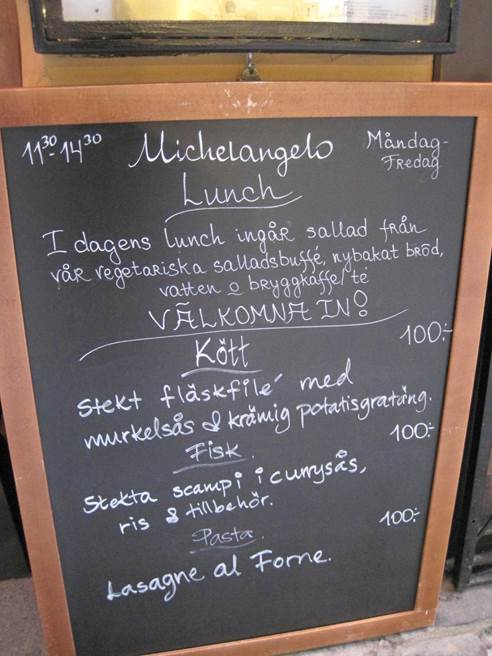 11³⁰-14³⁰ Michelangelo Måndag-
Fredag
Lunch
I dagens lunch ingår sallad från
vår vegetariska salladsbuffé, nybakat bröd,
vatten o bryggkaffe/te
VÄLKOMNA IN!
Kött 100:-
Stekt fläskfilé med
murkelsås & krämig potatisgratäng.
Fisk. 100:-
Stekta scampi i currysås,
ris & tillbehör.
Pasta. 100:-
Lasagne al Forne.